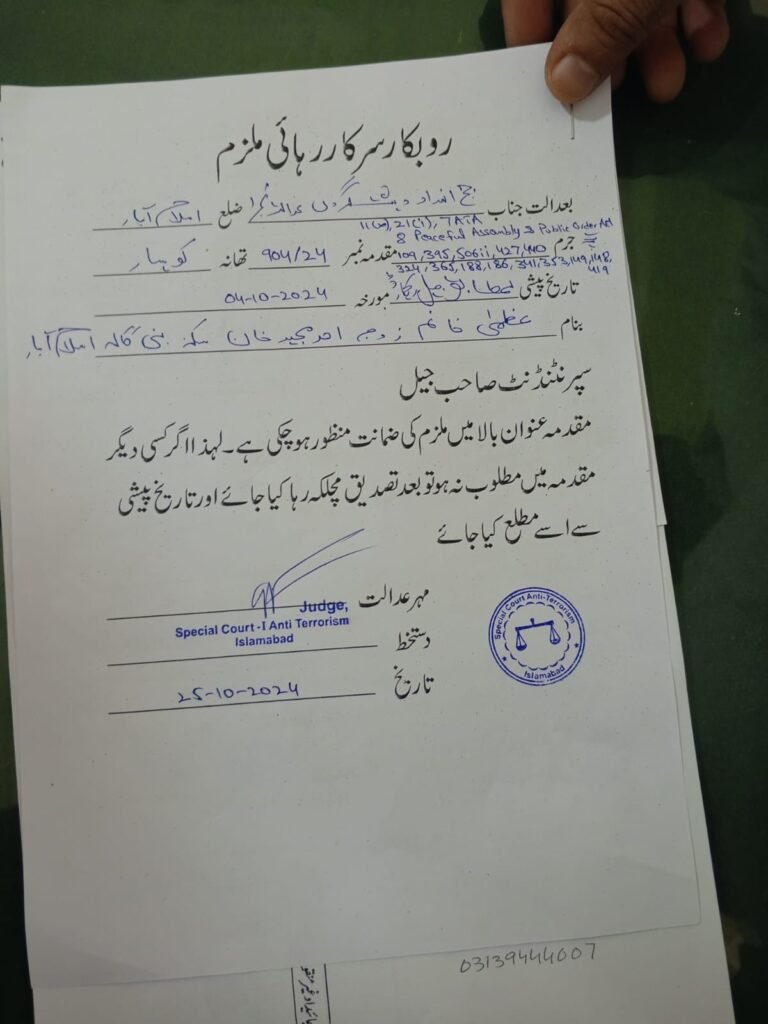 روبکار سرکار رہائی ملزم
بعدالت جناب جج انسداد دہشتگردی عدالت نمبر 1 ضلع اسلام آباد
11(w), 21(i), 7ATA
8 Peaceful Assembly & Public Order Act
جرم 109, 395, 506ii, 427, 440 مقدمہ نمبر 904/24 تھانہ کوہسار
324, 365, 188, 186, 341, 353, 149, 148,
419
تاریخ پیشی بمطابق جیل ریکارڈ مورخہ 04-10-2024
بنام عظمیٰ خانم زوجہ احمد مجید خان سکنہ بنی گالہ اسلام آباد
سپرنٹنڈنٹ صاحب جیل
مقدمہ عنوان بالا میں ملزم کی ضمانت منظور ہو چکی ہے۔ لہذا اگر کسی دیگر
مقدمہ میں مطلوب نہ ہو تو بعد تصدیق مچلکہ رہا کیا جائے اور تاریخ پیشی
سے اسے مطلع کیا جائے
مہر عدالت
Judge,
Special Court -I Anti Terrorism
Islamabad
دستخط
تاریخ 25-10-2024
Special Court Anti-Terrorism
Islamabad
03139444007